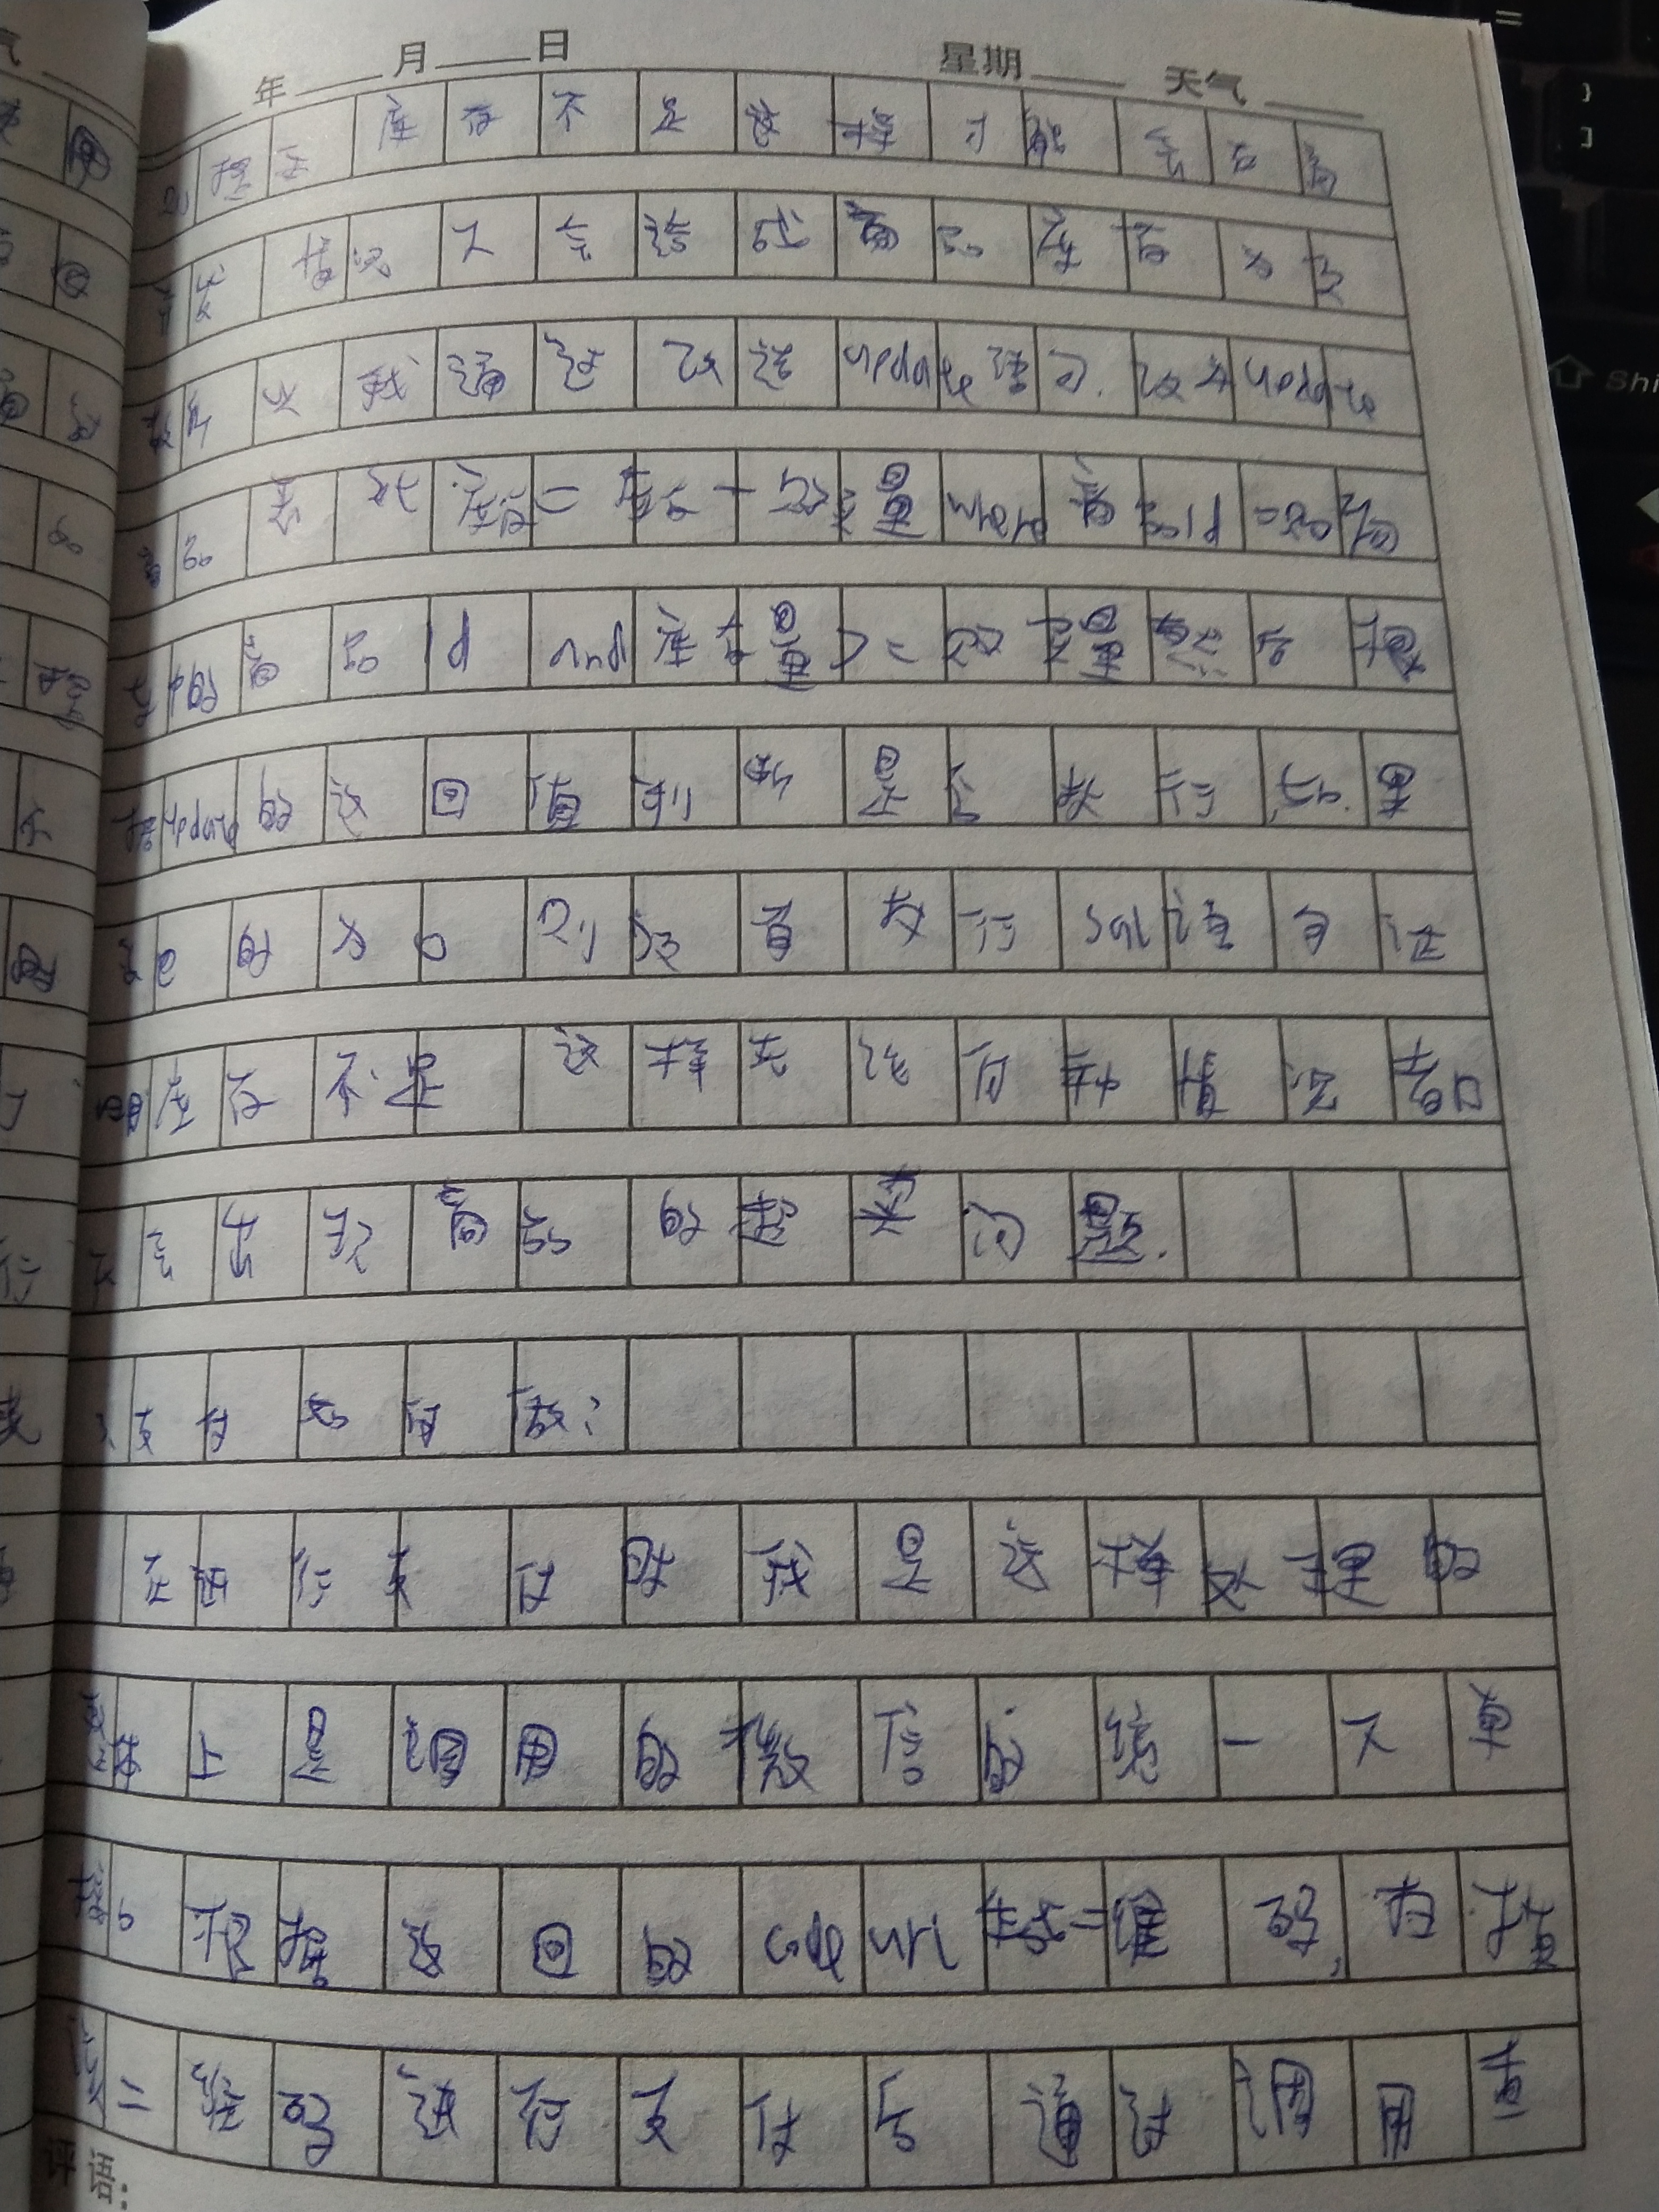 年 月 日 星期 天气
提示库存不足这样才能在高
并发情况下会造成商品库存为负
我通过改造update语句.改为update
商品表 set 库存=库存-购买数量 where 商品id=购买
中的商品id and 库存量>=购买数量然后根
据update的返回值判断是否执行,如果
返回的为0则没有执行sql语句证
明库存不足 这样无论何种情况都
不会出现商品的超卖问题.
支付如何做?
在进行支付时我是这样处理的
实际上是调用的微信的统一下单
接口根据返回的code url生成二维码,扫描
二维码进行支付后通过调用查
评语: